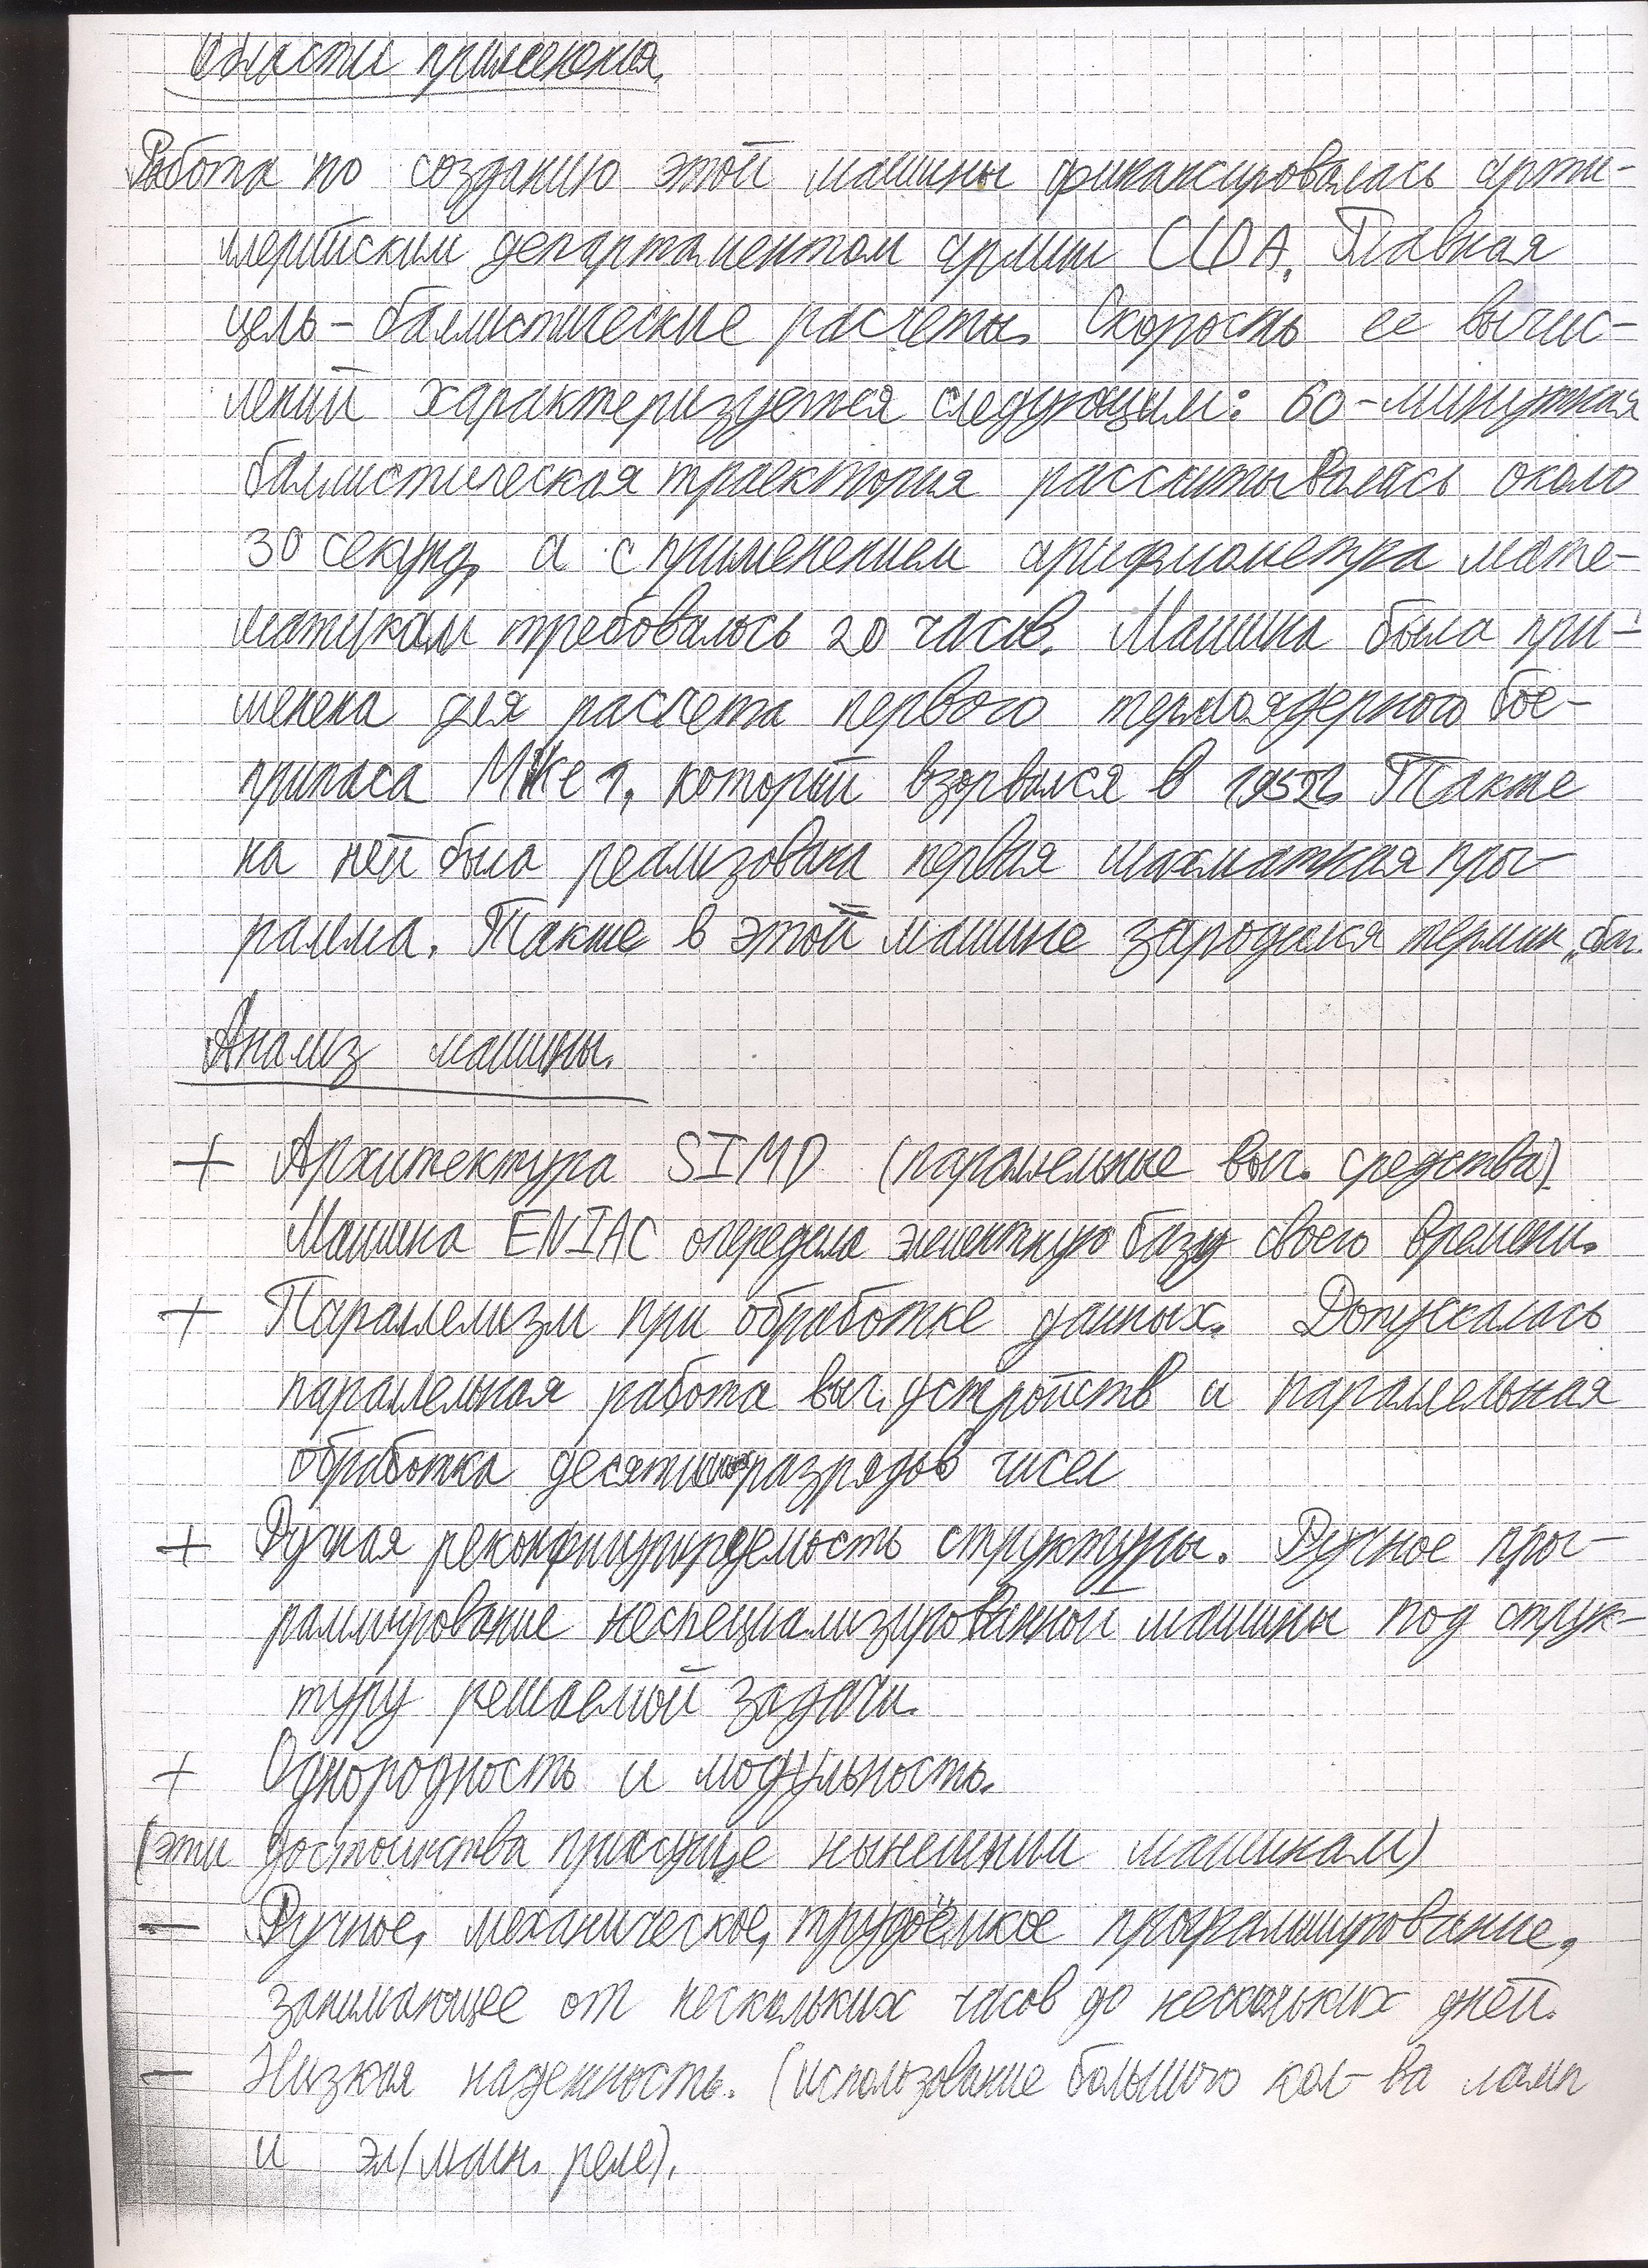 Области применения.
Работа по созданию этой машины финансировалась арти-
ллерийским департаментом армии США. Главная
цель - баллистические расчеты. Скорость ее вычис-
лений характеризуется следующим: 60-минутная
баллистическая траектория рассчитывалась около
30 секунд, а с применением арифмометра мате-
матикам требовалось 20 часов. Машина была при-
менена для расчета первого термоядерного бое-
припаса который взорвался в Также
на ней была реализована первая шахматная прог-
рамма. Также в этой машине зародился термин „баг.
Анализ машины.
+ Архитектура SIMD (параллельные выч. средства)
Машина ENIAC опередила элементную базу своего времени.
+ Параллелизм при обработке данных. Допускалась
параллельная работа выч. устройств и параллельная
обработка разрядов чисел
+ Ручная реконфигурируемость структуры. Ручное прог-
раммирование неспециализированной машины под струк-
туру решаемой задачи.
+ Однородность и модульность.
(эти достоинства присуще нынешним машинам)
- Ручное, механическое, трудоёмкое программирование,
занимающее от нескольких часов до нескольких дней.
- Низкая надежность. (использование большого кол-ва ламп
и эл/магн. реле).